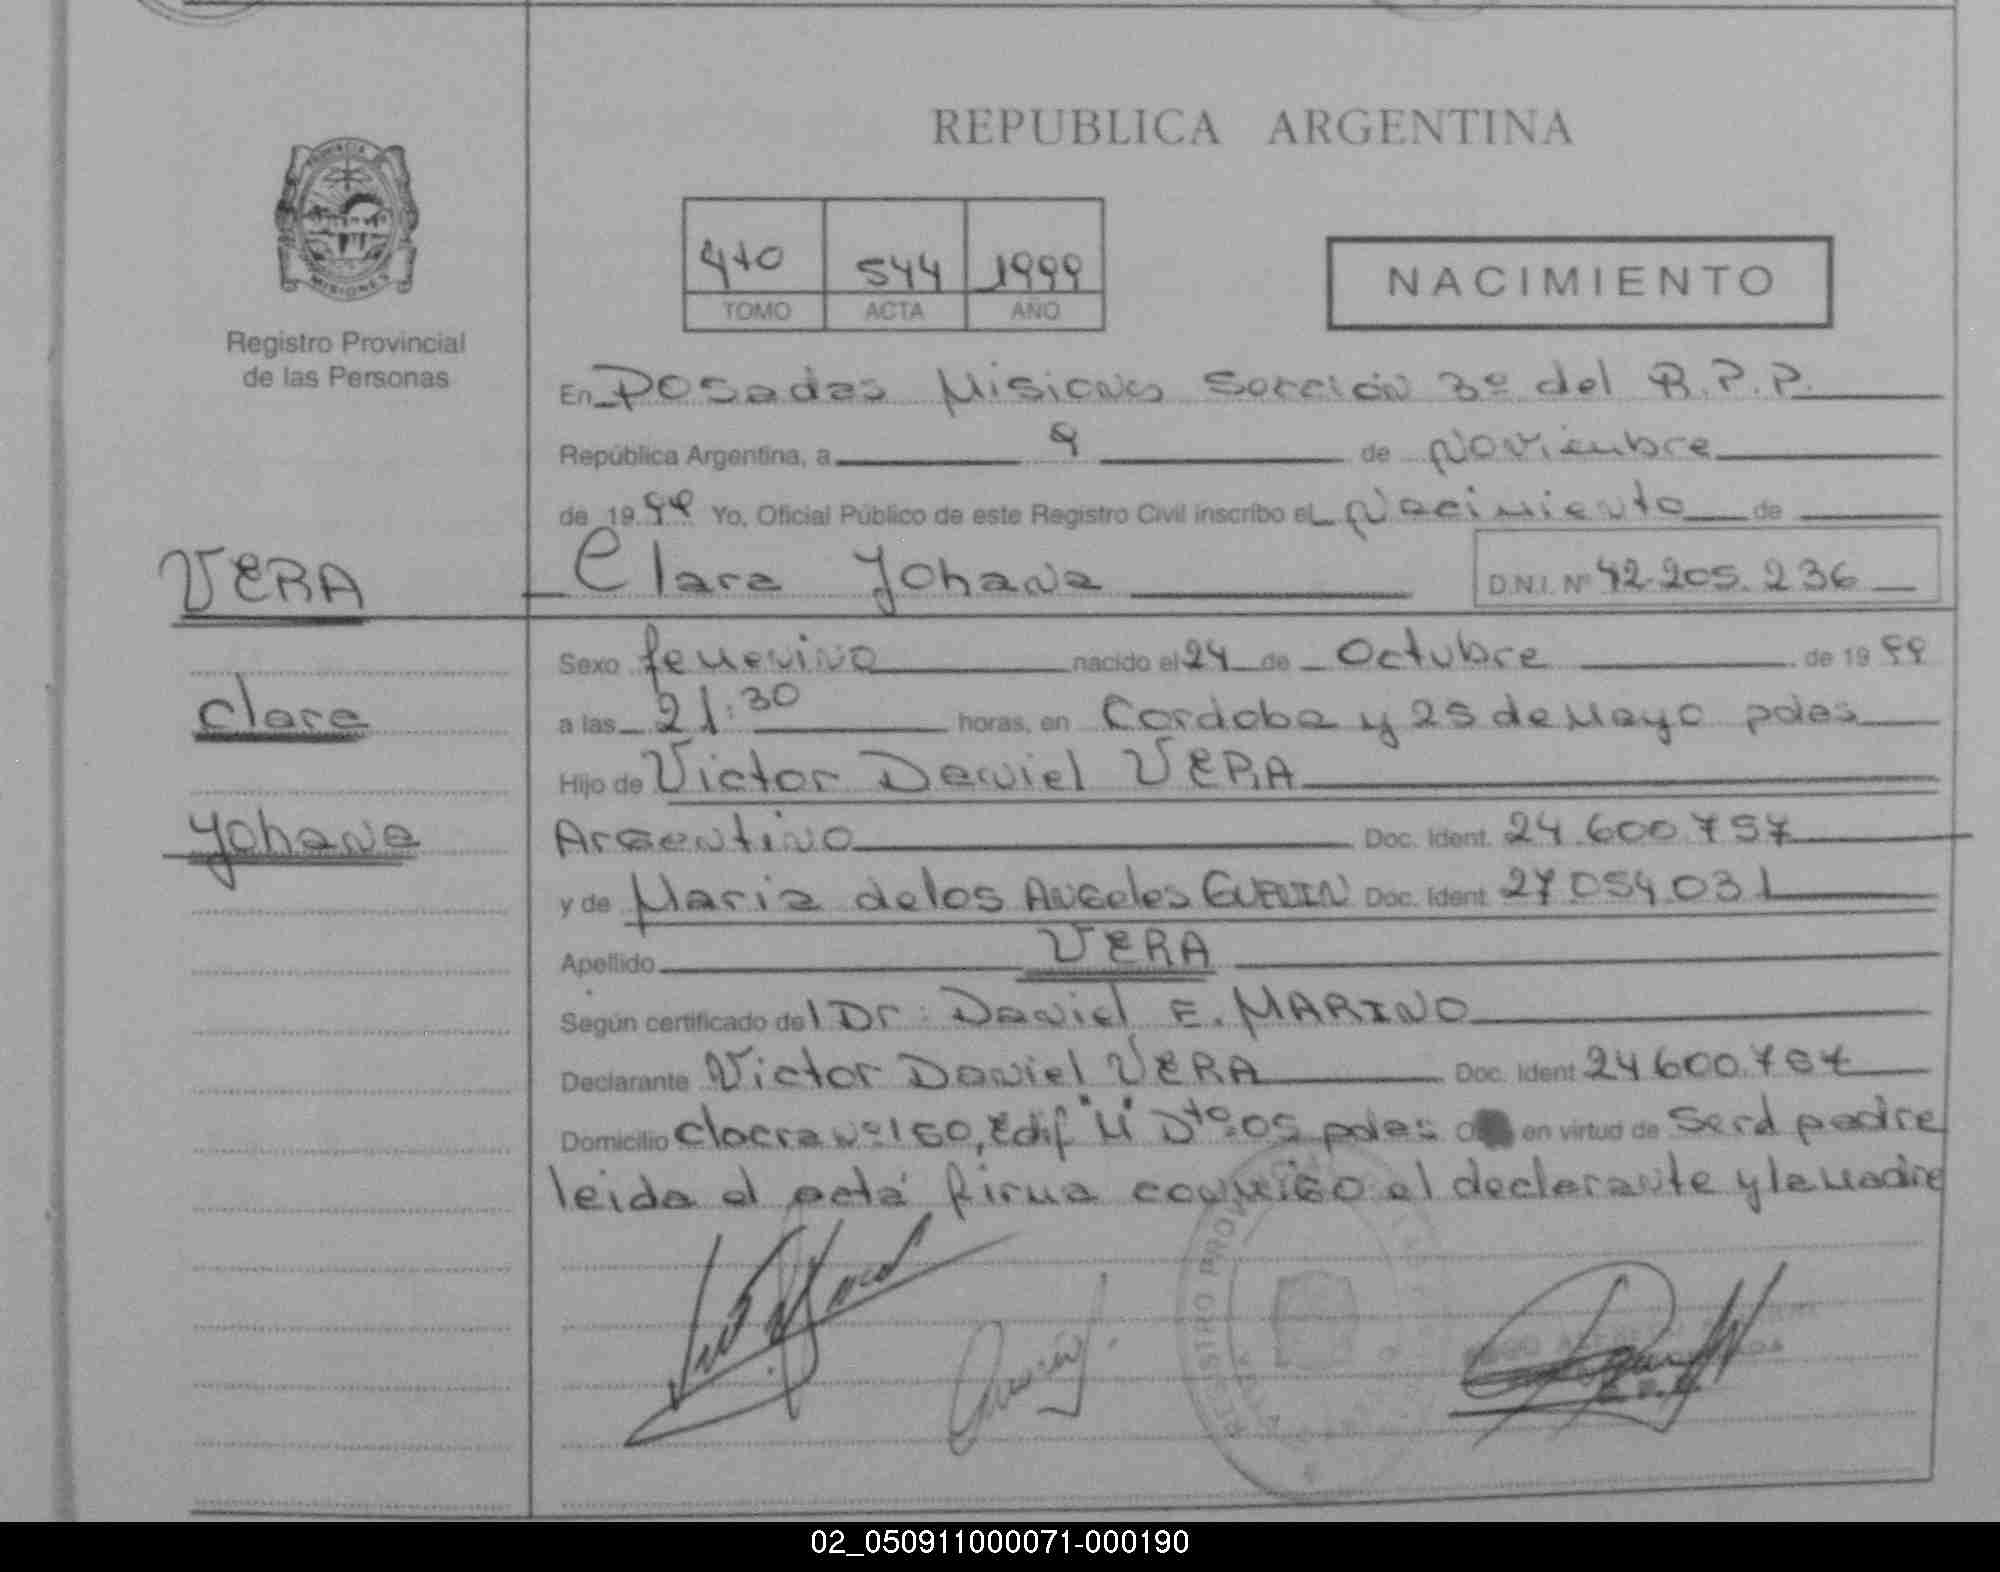 REPUBLICA ARGENTINA
PROVINCIA
MISIONES
Registro Provincial
de las Personas
4to 544 1999
TOMO ACTA AÑO
NACIMIENTO
En Posadas Misiones Sección 3º del R.P.P.
República Argentina, a 9 de Noviembre
de 1999 Yo, Oficial Público de este Registro Civil inscribo el Nacimiento de
VERA
Clara Yohana D.N.I. Nº 42.205.236
Sexo femenino nacido el 24 de Octubre de 1999
Clara
a las 21:30 horas, en Cordoba y 25 de Mayo pdas
Hijo de Victor Daniel VERA
Yohana
Argentino Doc. Ident. 24.600.757
y de Maria de los Angeles Doc. Ident. 27.054.031
Apellido VERA
Según certificado del Dr: Daniel E. MARINO
Declarante Victor Daniel VERA Doc. Ident 24600.757
Domicilio Nº 160, Edif "M" Dto: 05 pdas en virtud de Ser el padre
leida el acta firma conmigo el declarante y la madre
REGISTRO PROVINCIAL
02_050911000071-000190